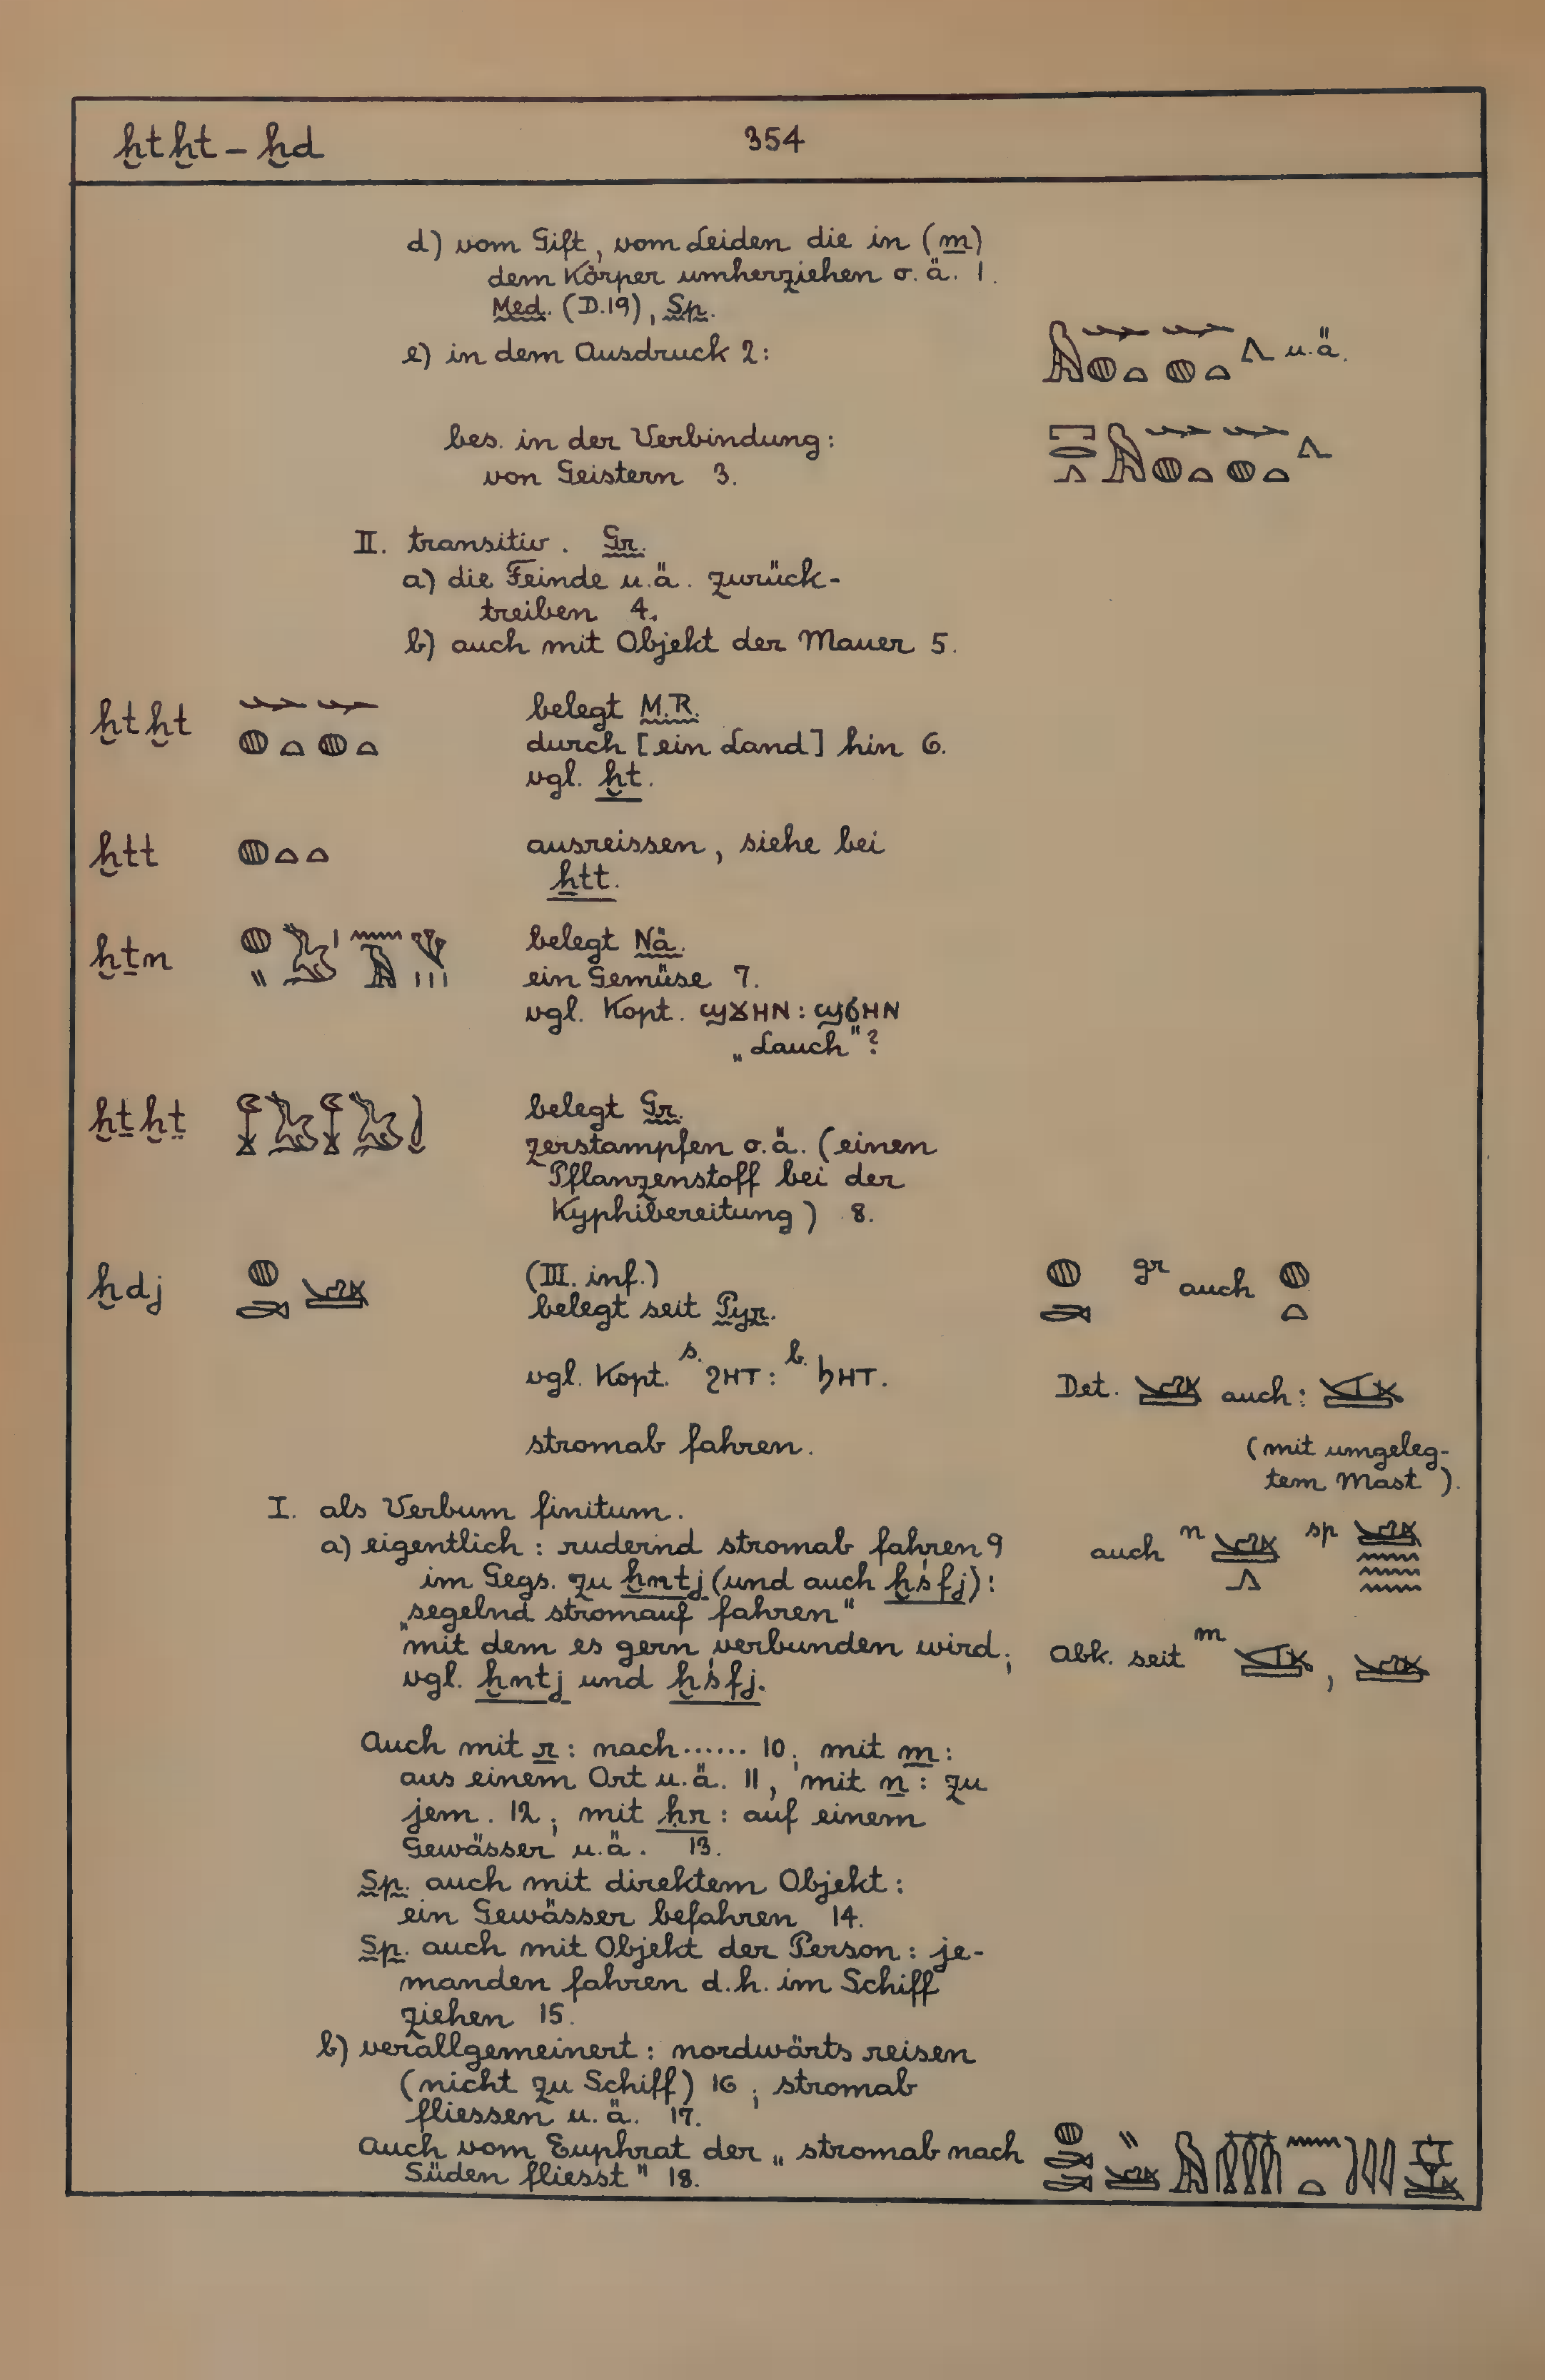 ḫtḫt – ḫd 354
d) vom Gift, vom Leiden die in (m)
dem Körper umherziehen o.ä. 1.
Med. (D.19), Sp.
e) in dem Ausdruck 2: u.ä.
bes. in der Verbindung:
von Geistern 3.
II. transitiv. Gr.
a) die Feinde u.ä. zurück-
treiben 4.
b) auch mit Objekt der Mauer 5.
ḫtḫt belegt M.R.
durch [ein Land] hin 6.
vgl. ḫt.
ḫtt ausreissen, siehe bei
ẖtt.
ḫṯn belegt Nä.
ein Gemüse 7.
vgl. Kopt. ϣϫⲏⲛ : ϣϭⲏⲛ
„Lauch"?
ḫṯḫṯ belegt Gr.
zerstampfen o.ä. (einen
Pflanzenstoff bei der
Kyphibereitung) 8.
ḫdj (III. inf.) gr auch
belegt seit Pyr.
vgl. Kopt. s. ϩⲏⲧ : b. ϧⲏⲧ. Det. auch:
stromab fahren. (mit umgeleg-
tem Mast).
I. als Verbum finitum.
a) eigentlich: rudernd stromab fahren 9 auch n sp
im Gegs. zu ḫntj (und auch ḫśfj):
„segelnd stromauf fahren"
mit dem es gern verbunden wird; Abk. seit m ,
vgl. ḫntj und ḫśfj.
Auch mit r: nach...... 10; mit m:
aus einem Ort u.ä. 11, mit n: zu
jem. 12; mit ḥr: auf einem
Gewässer u.ä. 13.
Sp. auch mit direktem Objekt:
ein Gewässer befahren 14.
Sp. auch mit Objekt der Person: je-
manden fahren d.h. im Schiff
ziehen 15.
b) verallgemeinert: nordwärts reisen
(nicht zu Schiff) 16; stromab
fliessen u.ä. 17.
Auch vom Euphrat der „stromab nach
Süden fliesst" 18.